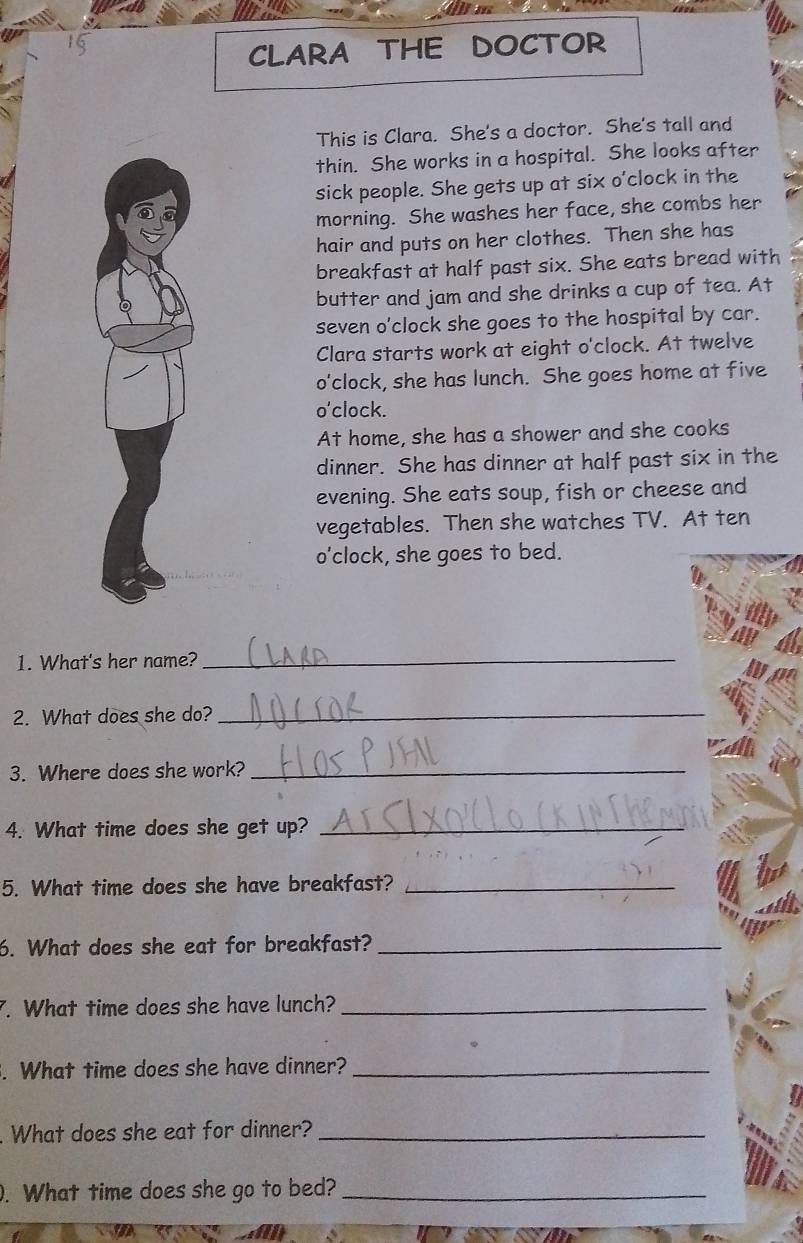 15
CLARA THE DOCTOR
This is Clara. She's a doctor. She's tall and
thin. She works in a hospital. She looks after
sick people. She gets up at six o'clock in the
morning. She washes her face, she combs her
hair and puts on her clothes. Then she has
breakfast at half past six. She eats bread with
butter and jam and she drinks a cup of tea. At
seven o'clock she goes to the hospital by car.
Clara starts work at eight o'clock. At twelve
o'clock, she has lunch. She goes home at five
o'clock.
At home, she has a shower and she cooks
dinner. She has dinner at half past six in the
evening. She eats soup, fish or cheese and
vegetables. Then she watches TV. At ten
o'clock, she goes to bed.
1. What's her name? CLARA
2. What does she do? DOCTOR
3. Where does she work?
4. What time does she get up? AT SIX O'CLOCK IN THE
5. What time does she have breakfast?
6. What does she eat for breakfast?
7. What time does she have lunch?
. What time does she have dinner?
. What does she eat for dinner?
. What time does she go to bed?